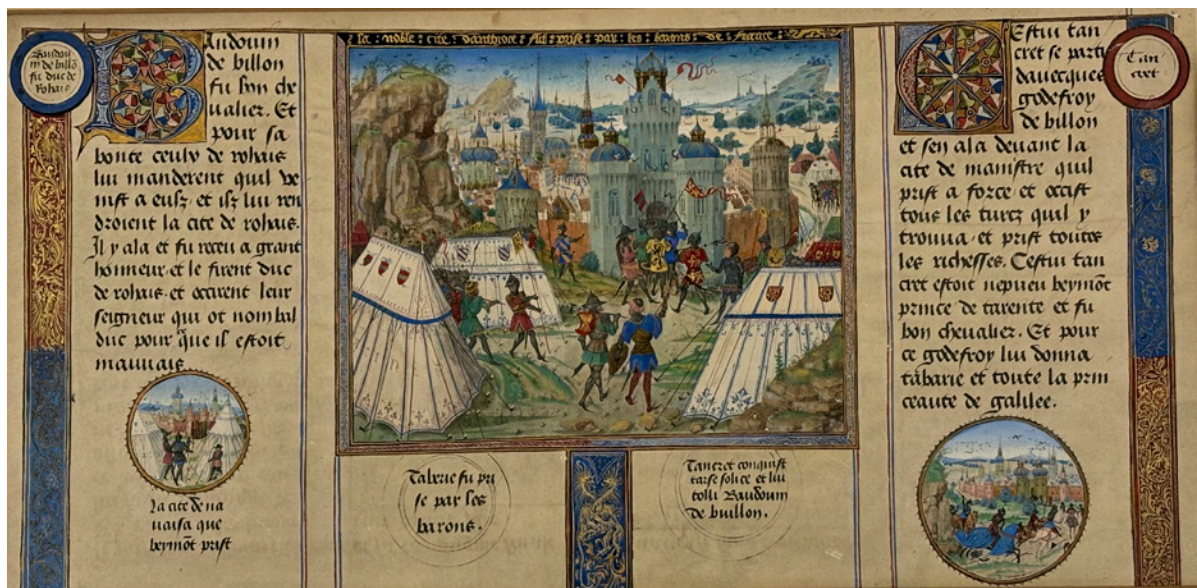 Baudou
in de billō
fu duc de
Rohais
Baudouin
de billon
fu bon che
ualier. Et
pour sa
bonte ceulx de rohais
lui manderent quil ve
nist a eulz et ilz lui ren
droient la cite de rohais.
Il y ala et fu receu a grant
honneur et le firent duc
de rohais. et occirent leur
seigneur qui ot nom bal
duc pour que il estoit
mauuais
La cite de na
uaisa que
beymōt prist
la : noble : cite : danthioce : fut : prise : par : les : barons : de : france :
Tabrie fu pri
se par les
barons.
Tancret conquist
tarse solice et lui
tolli Baudouin
de buillon.
Cestui tan
cret se parti
dauecques
godefroy
de billon
et sen ala deuant la
cite de mamistre quil
prist a force et occist
tous les turcz quil y
trouua. et prist toutes
les richesses. Cestui tan
cret estoit nepueu beymōt
prince de tarente et fu
bon cheualier. Et pour
ce godefroy lui donna
tabarie et toute la prin
ceaute de galilee.
Tan
cret